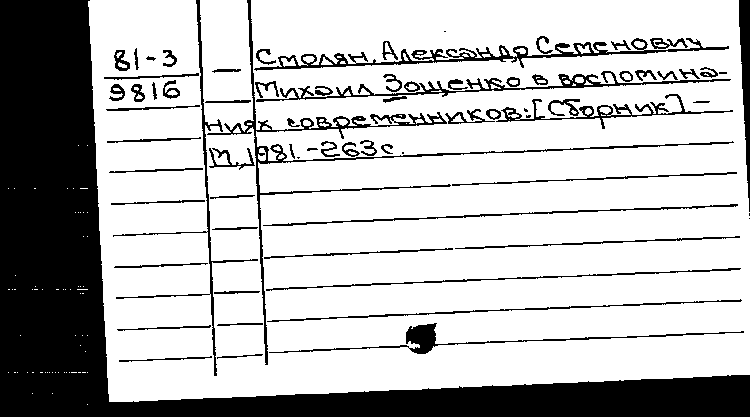 81-3
9816
— Смолян, Александр Семенович
Михаил Зощенко в воспомина-
ниях современников: [Сборник]. -
М., 1981. - 263 с.